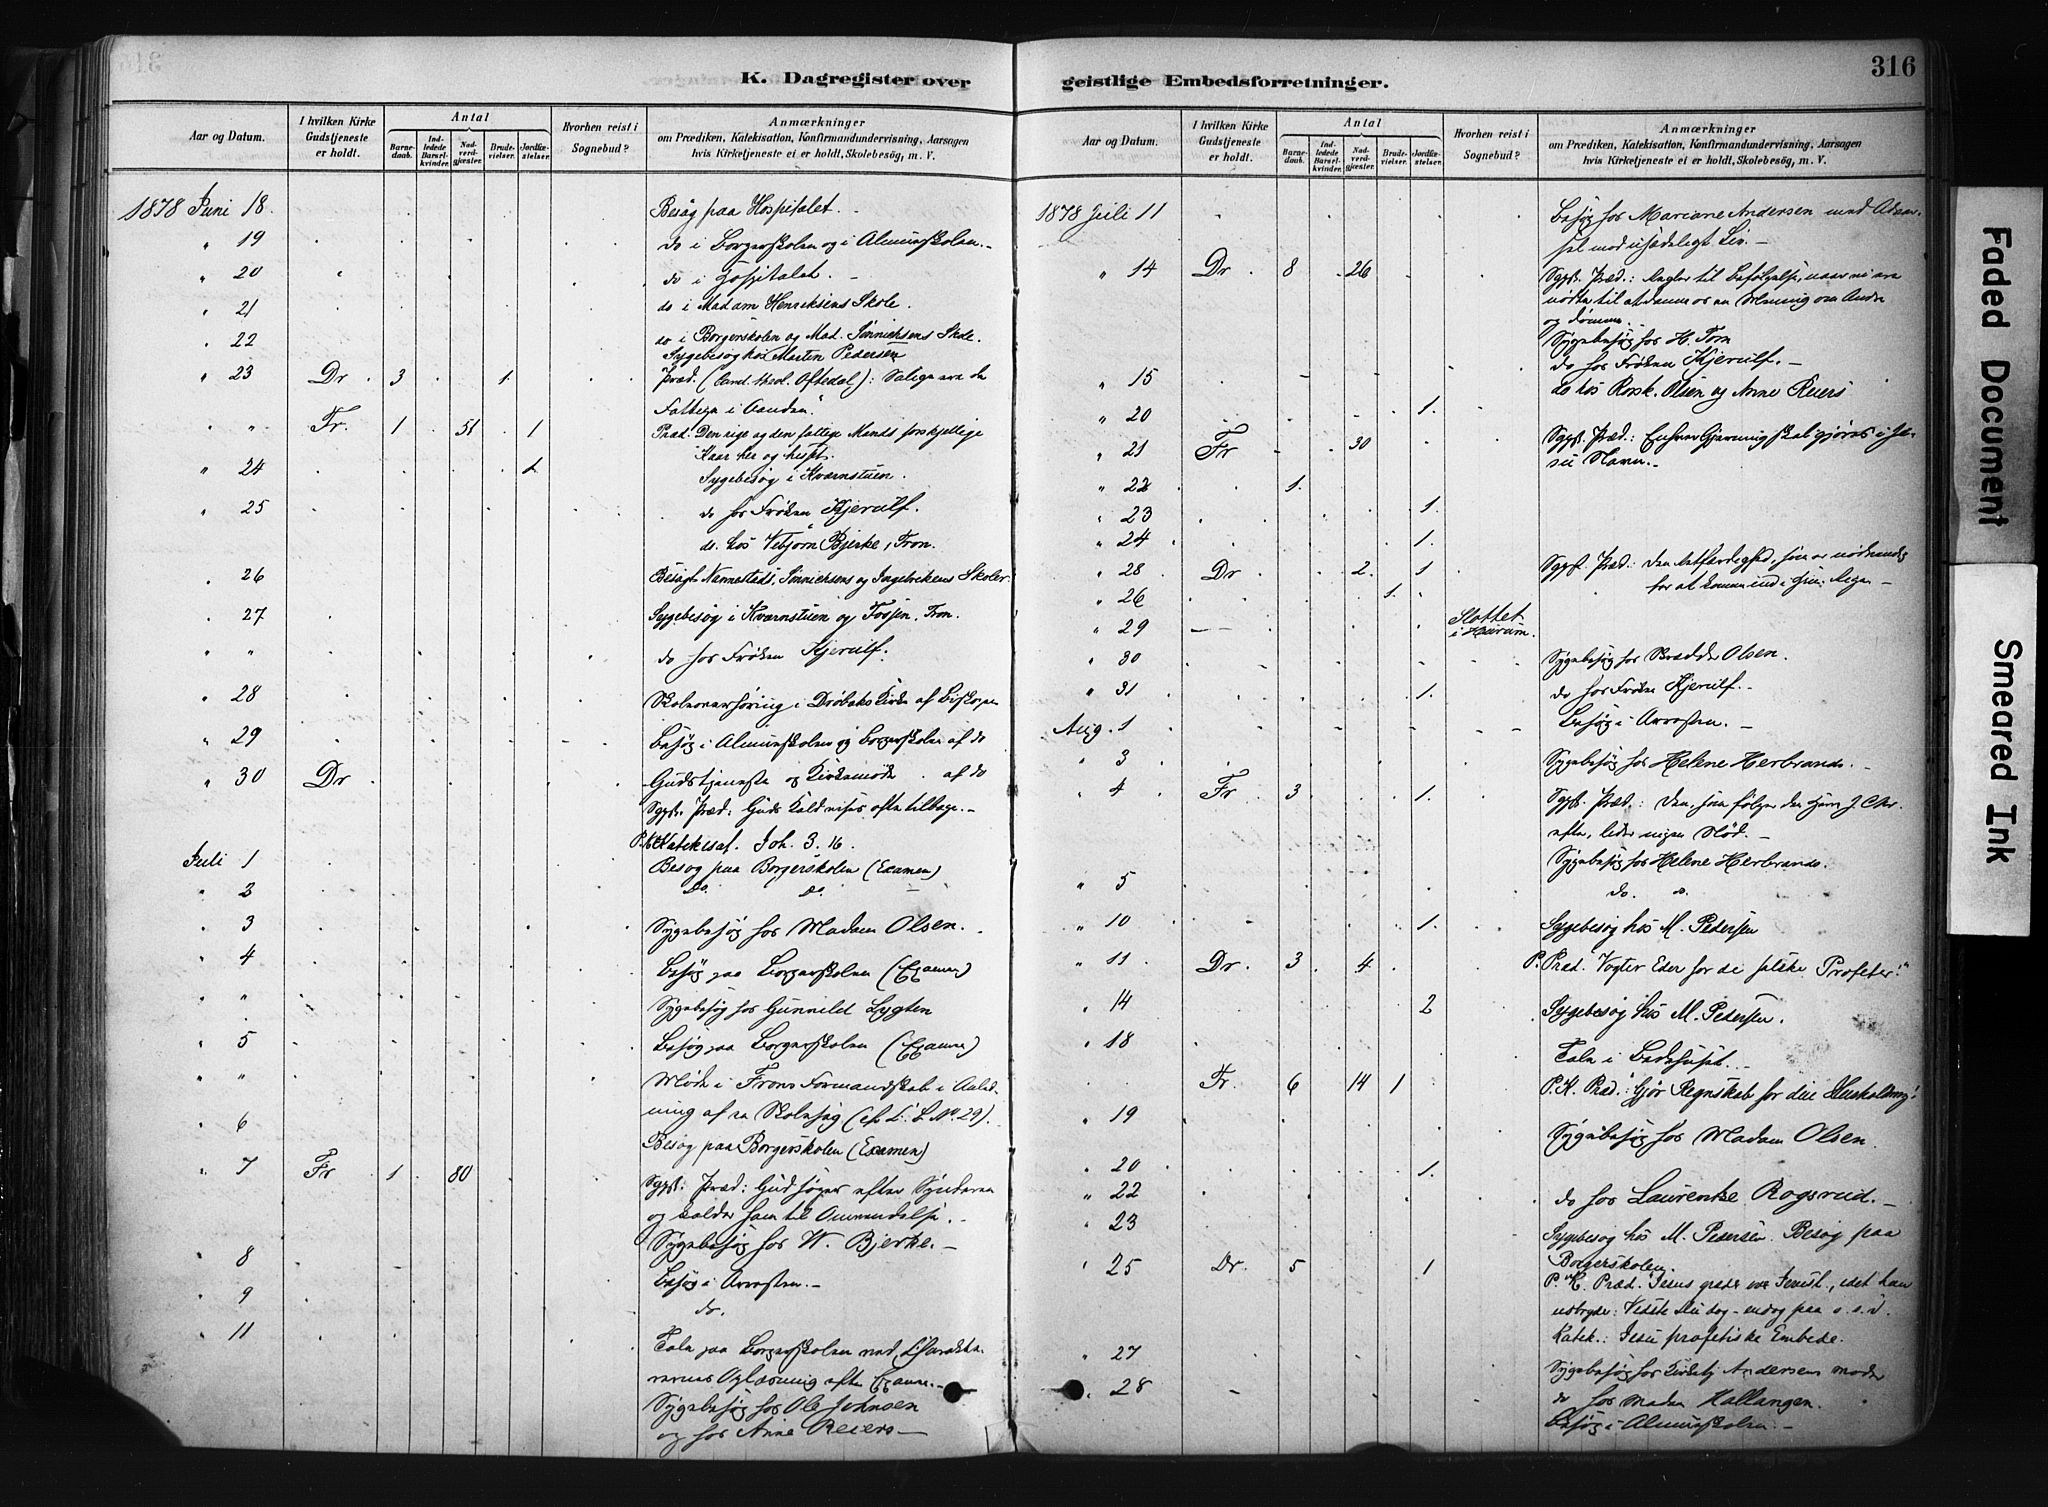 316
K. Dagregister over geistlige Embedsforretninger.
Aar og Datum.
I hvilken Kirke Gudstjeneste er holdt.
Antal
Barnedaab.
Indledede Barselkvinder.
Nadverdgjæster.
Brudevielser.
Jordfæstelser.
Hvorhen reist i Sognebud?
Anmærkninger
om Prædiken, Katekisation, Konfirmandundervisning, Aarsagen
hvis Kirketjeneste ei er holdt, Skolebesög, m. V.
1878 Juni 18. Besøg paa Hospitalet.
" 19 do i Borgerskolen og i Almueskolen.
" 20 do i Hospitalet.
" 21 do i Madam Henriksens Skole.
" 22 do i Borgerskolen og Mad. Sønnichsens Skole.
Sygebesøg hos Martin Pedersen
" 23 Dr 3 1. Præd. (Cand. theol. Oftedal): Salige ere de
Fattige i Aanden."
" " Fr. 1 51 1 Præd. Den rige og den fattige Mands forskjellige
Kaar her og hisset.
" 24 1 Sygebesøg i Kværnstuen.
" 25 do hos Frøken Kjerulf.
do. hos Vebjørn Bjerke, Fron.
" 26 Besøgt Nannestads, Sønnichsens og Ingebrikens Skoler.
" 27 Sygebesøg i Kværnstuen og Fossen, Fron.
" " do hos Frøken Kjerulf.
" 28 Skoleoverhøring i Drøbaks Kirke af Biskopen
" 29 Besøg i Almueskolen og Borgerskolen af do
" 30 Dr Gudstjeneste og Kirkemøde af do
Sgpr. Præd: Guds Kald vises efter tillage.
P.K. Katekisat. Joh. 3. 16.
Juli 1 Besøg paa Borgerskolen (Examen)
" 2 Do. Do.
" 3 Sygebesøg hos Madam Olsen.
" 4 Besøg paa Borgerskolen (Examen)
" " Sygebesøg hos Gunnild Lygten
" 5 Besøg paa Borgerskolen (Examen)
" " Møde i Frons Formandskab i Anled-
ning af en Skolesag (cf. C. B. No. 29).
" 6 Besøg paa Borgerskolen (Examen)
" 7 Fr 1 80 Sgpr. Præd: Gud søger efter Synderen
og kalder ham til Omvendelse.
" 8 Sygebesøg hos W. Bjerke.
" 9 Besøg i Arresten.
do.
" 11 Tale paa Borgerskolen ved Charakte-
rernes Oplæsning efter Examen.
Sygebesøg hos Ole Johnsen
og hos Anne Reiers
Aar og Datum.
I hvilken Kirke Gudstjeneste er holdt.
Antal
Barnedaab.
Indledede Barselkvinder.
Nadverdgjæster.
Brudevielser.
Jordfæstelser.
Hvorhen reist i Sognebud?
Anmærkninger
om Prædiken, Katekisation, Konfirmandundervisning, Aarsagen
hvis Kirketjeneste ei er holdt, Skolebesög, m. V.
1878 Juli 11 Besøg hos Mariane Andersen med Advar-
sel mod usædeligt Liv.
" 14 Dr 8 26 Sgpr. Præd.: Regler til Befølgelse, naar vi ere
nødte til at danne os en Mening om Andre
og dømme.
Sygebesøg hos H. Torn
do hos Frøken Kjerulf.
" 15 do hos Rosk. Olsen og Anne Reiers
" 20 1.
" 21 Fr 30 Sgpr. Præd.: Enhver Gjerning skal gjøres i Je-
su Navn.
" 22 1.
" 23 1.
" 24 1.
" 28 Dr 2. 1 Sgpr. Præd.: Den Retfærdighed, som er nødvendig
for at komme ind i Him. Rige.
" 26 1.
" 29 Slottet
i Hurum.
" 30 Sygebesøg hos Bredde Olsen.
" 31 1. do hos Frøken Kjerulf.
Aug. 1 Besøg i Arresten.
" 3 Sygebesøg hos Helene Herbrands.
" 4 Fr 3 1. Sgpr. Præd.: Den, som følger den Herre J. Chr.
efter, lider ingen Nød.
Sygebesøg hos Helene Herbrands.
" 5 do. do
" 10 1. Sygebesøg hos M. Pedersen
" 11 Dr. 3 4 P. Præd. "Vogter Eder for de falske Profeter!"
" 14 2 Sygebesøg hos M. Pedersen.
" 18 Tale i Bedehuset.
Fr. 6 14 1 P.K. Præd.: "Gjør Regnskab for din Husholdning!"
" 19 Sygebesøg hos Madam Olsen.
" 20 1.
" 22 do hos Laurentse Rogsrud.
" 23 Sygebesøg hos M. Pedersen. Besøg paa
Borgerskolen.
" 25 Dr. 5 1 P. K. Præd. Jesus græder over Jerusl., idet han
udbryder: Vidste du dog - endog paa o.s.v.
Katek.: Jesu profetiske Embede.
" 27 Sygebesøg hos Kirketj. Andersens moder
" 28 do hos Madam Hallangen.
Besøg i Almueskolen.
Faded Document
Smeared Ink